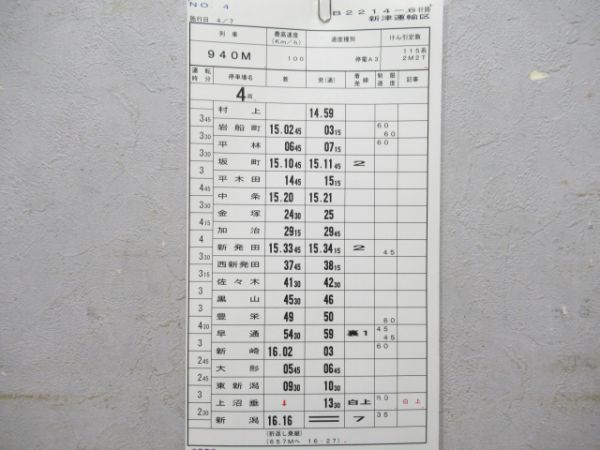 NO. 4 B2214-.6行路
施行日 4/7 新津運輸区
列車 最高速度 (Km/h) 速度種別 けん引定数
940M 100 停電A3 115系 2M2T
運転時分 停車場名 着 発(通) 着発線 制限速度 記事
4両
村上 14.59
3 45
岩船町 15.02 45 03 15 60 60
3 30
平林 06 45 07 15 60
3 30
坂町 15.10 45 15.11 45 2
3
平木田 14 45 15 15
4 45
中条 15.20 15.21
3 30
金塚 24 30 25
4 15
加治 29 15 29 45
4
新発田 15.33 45 15.34 15 2 45
3 30
西新発田 37 45 38 15
3 15
佐々木 41 30 42 30
3
黒山 45 30 46
3
豊栄 49 50 60
4 30
早通 54 30 59 裏1 45 45
3
新崎 16.02 03 60
2 45
大形 05 45 06 45
2 45
東新潟 09 30 10 30
3
上沼垂 ↓ 13 30 白上 60 白上
2 30
新潟 16.16 7 35
(折返し乗継)
(657Mへ 16:27)